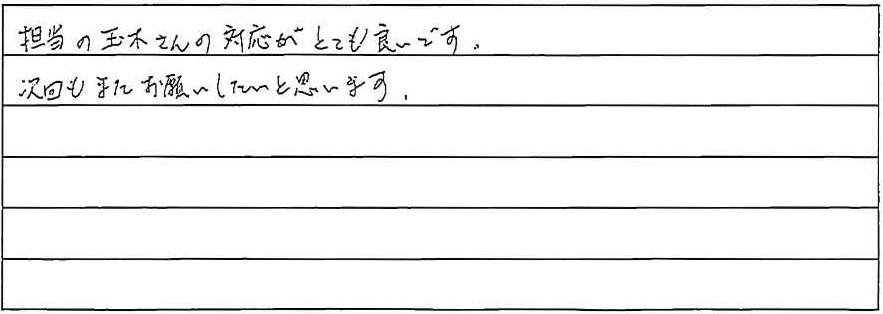 担当の玉木さんの対応がとても良いです。
次回もまたお願いしたいと思います。